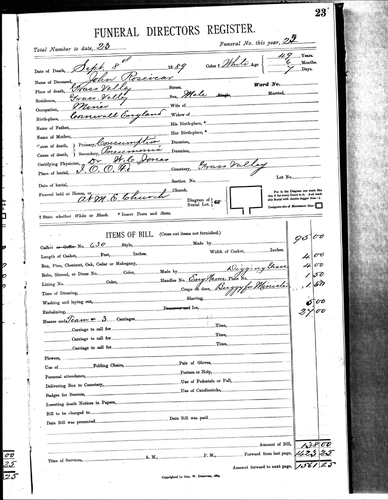 23
FUNERAL DIRECTORS REGISTER.
Total Number to date, 23 Funeral No. this year, 23
Date of Death, Sept. 8th 1889 Color, White Age 49 Years.
Name of Deceased, John Rosevear 6 Months.
Place of death, Grass Valley Street. 7 Days.
Residence, Grass Valley Ward No.
Occupation, Miner Sex, Male Single. Married.
Birth-place, Cornwall England Wife of
Name of Father, Widow of
Name of Mother, His Birth-place,
Cause of death Primary, Consumption Her Birth-place,
Secondary, Pneumonia Duration,
Duration,
Certifying Physician, Dr W. C. Jones
Place of burial, I.O.O.F. Cemetery, Grass Valley
Date of burial, Section No. Lot No.
Funeral held at Home, or at M.E. Church Church.
Diagram of Burial Lot.
† State whether White or Black. * Insert Town and State.
ITEMS OF BILL. (Cross out items not furnished.)
Casket or Coffin No. 630 Style, Made by 95.00
Length of Casket, Feet, Inches. Width of Casket, Inches.
Box, Pine, Chestnut, Oak, Cedar or Mahogany, 4.00
Robe, Shroud, or Dress No. Color, Made by Digging Grave 4.00
Lining No. Color, Handles No. Engraving Plate No. 1.50
Time of Dressing, Crape to door, Buggy for Minister 1.50
Washing and laying out, Shaving,
Embalming, Preserver and Ice, 5.00
Hearse and Team & 3 Carriages 27.00
Carriage to call for Time,
Carriage to call for Time,
Carriage to call for Time,
Carriage to call for Time,
Flowers,
Use of Folding Chairs, Pair of Gloves,
Personal attendance, Porters or Help,
Delivering Box to Cemetery, Use of Pedestals or Pall,
Badges for Bearers, Use of Candlesticks,
Inserting death Notices in Papers,
Bill to be charged to
Date Bill was presented Date Bill was paid
Amount of Bill, 138.00
Forward from last page, 1423.25
Time of Services, A. M., P. M. Amount forward to next page, 1561.25